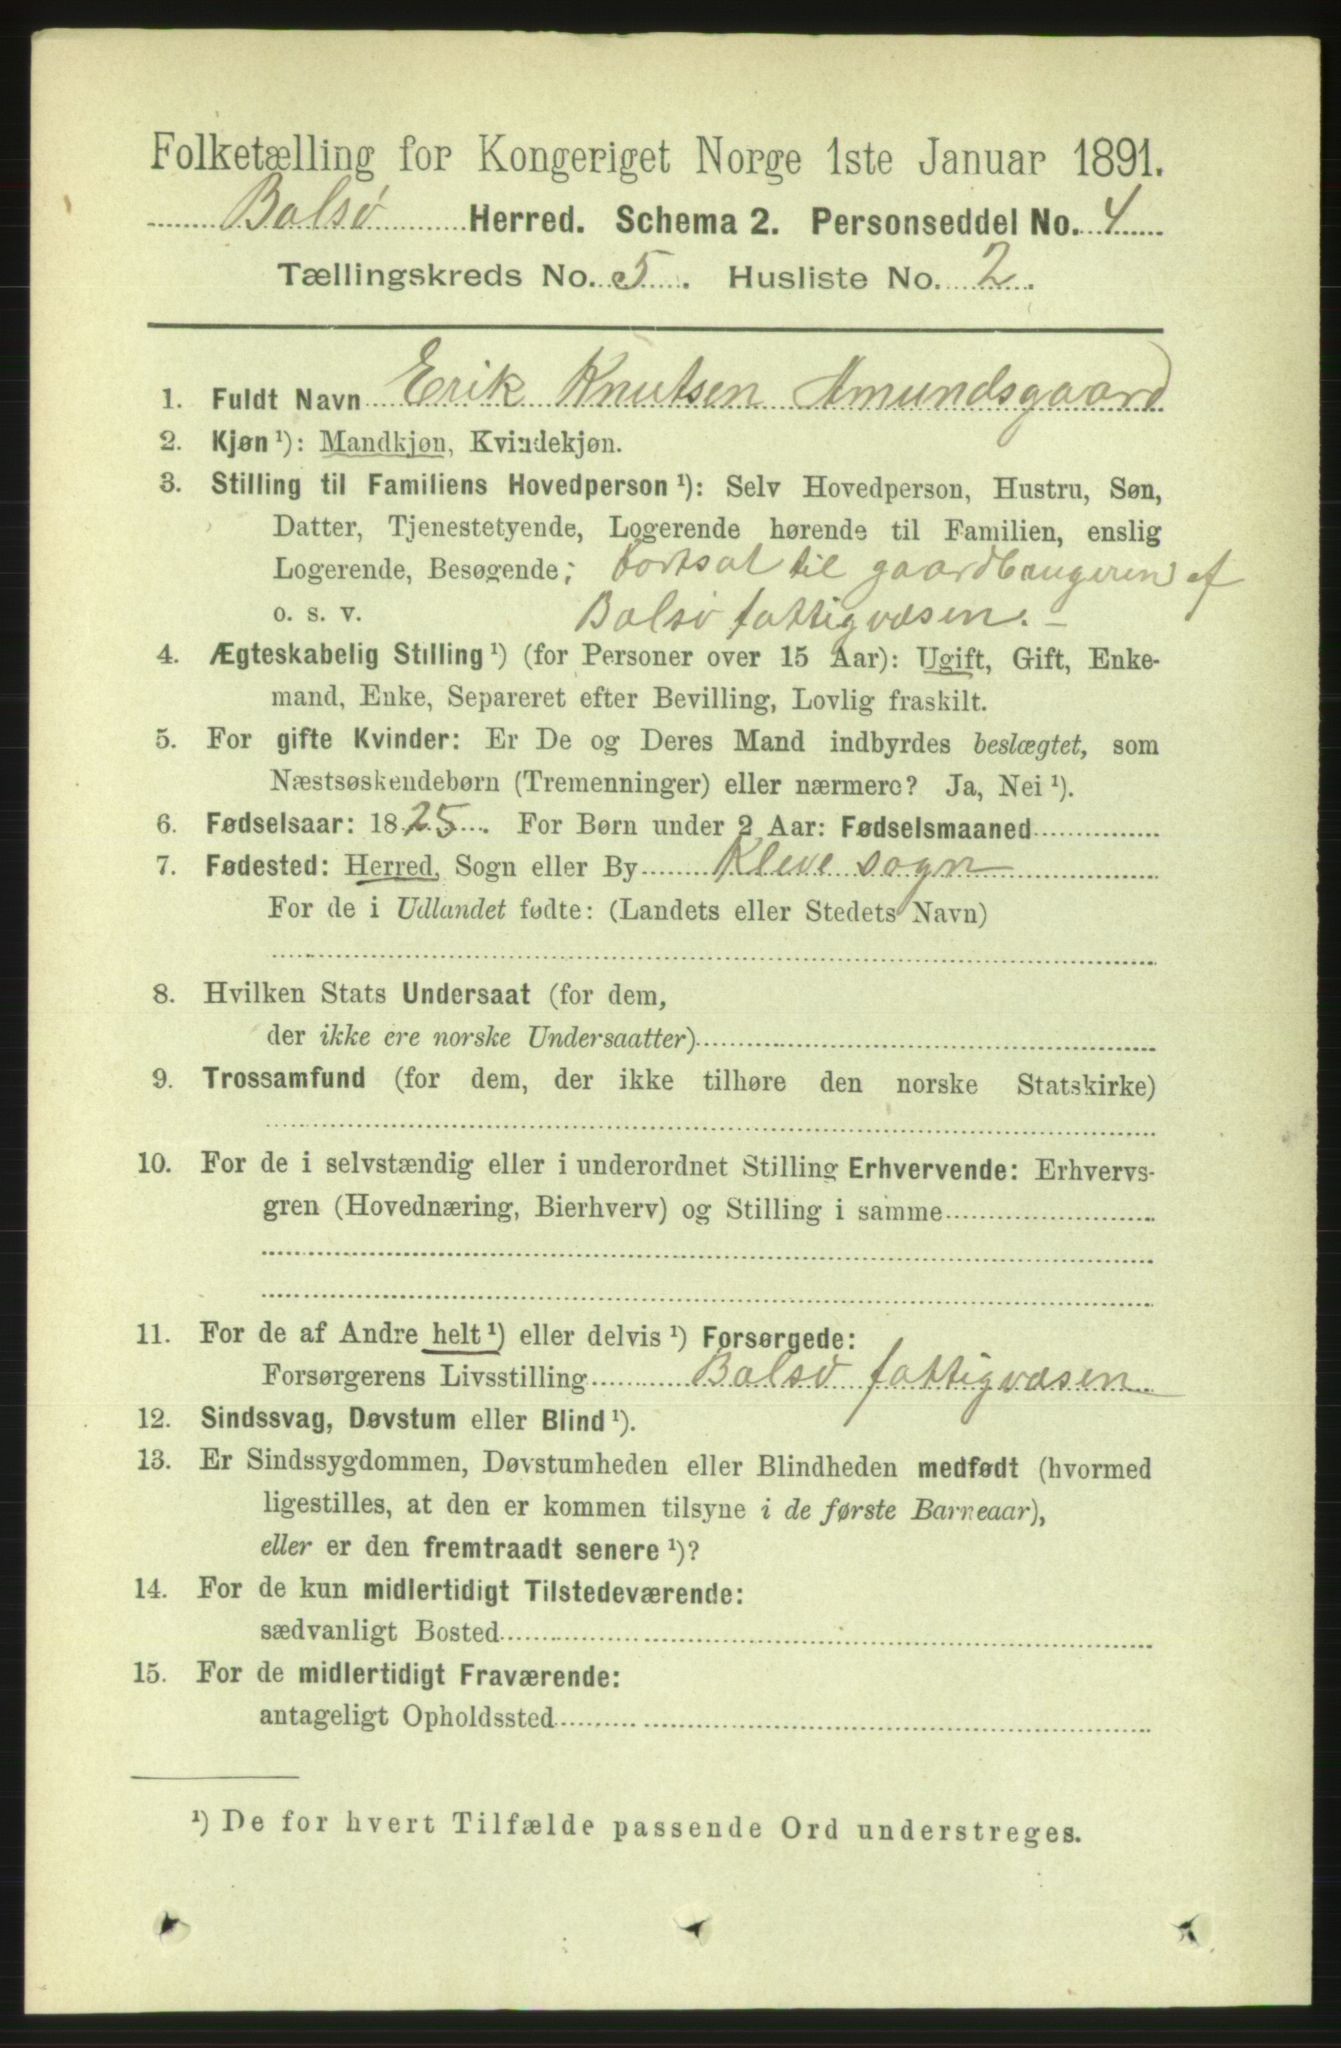 Folketælling for Kongeriget Norge 1ste Januar 1891.
Bolsø Herred. Schema 2. Personseddel No. 4
Tællingskreds No. 5. Husliste No. 2.
1. Fuldt Navn Erik Knutsen Amundsgaard
2. Kjøn ¹): Mandkjøn, Kvindekjøn.
3. Stilling til Familiens Hovedperson ¹): Selv Hovedperson, Hustru, Søn,
Datter, Tjenestetyende, Logerende hørende til Familien, enslig
Logerende, Besøgende; bortsat til gaardbrugeren af
o. s. v. Bolsø fattigvæsen. –
4. Ægteskabelig Stilling ¹) (for Personer over 15 Aar): Ugift, Gift, Enke-
mand, Enke, Separeret efter Bevilling, Lovlig fraskilt.
5. For gifte Kvinder: Er De og Deres Mand indbyrdes beslægtet, som
Næstsøskendebørn (Tremenninger) eller nærmere? Ja, Nei ¹).
6. Fødselsaar: 1825. For Børn under 2 Aar: Fødselsmaaned
7. Fødested: Herred, Sogn eller By Kleve sogn
For de i Udlandet fødte: (Landets eller Stedets Navn)
8. Hvilken Stats Undersaat (for dem,
der ikke ere norske Undersaatter)
9. Trossamfund (for dem, der ikke tilhøre den norske Statskirke)
10. For de i selvstændig eller i underordnet Stilling Erhvervende: Erhvervs-
gren (Hovednæring, Bierhverv) og Stilling i samme
11. For de af Andre helt ¹) eller delvis ¹) Forsørgede:
Forsørgerens Livsstilling Bolsø fattigvæsen
12. Sindssvag, Døvstum eller Blind ¹).
13. Er Sindssygdommen, Døvstumheden eller Blindheden medfødt (hvormed
ligestilles, at den er kommen tilsyne i de første Barneaar),
eller er den fremtraadt senere ¹)?
14. For de kun midlertidigt Tilstedeværende:
sædvanligt Bosted
15. For de midlertidigt Fraværende:
antageligt Opholdssted
¹) De for hvert Tilfælde passende Ord understreges.